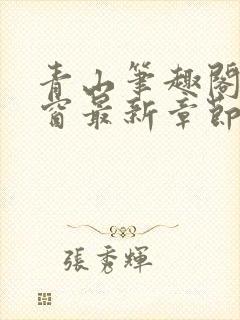 青山筆趣閣
窗最新章節
張秀輝